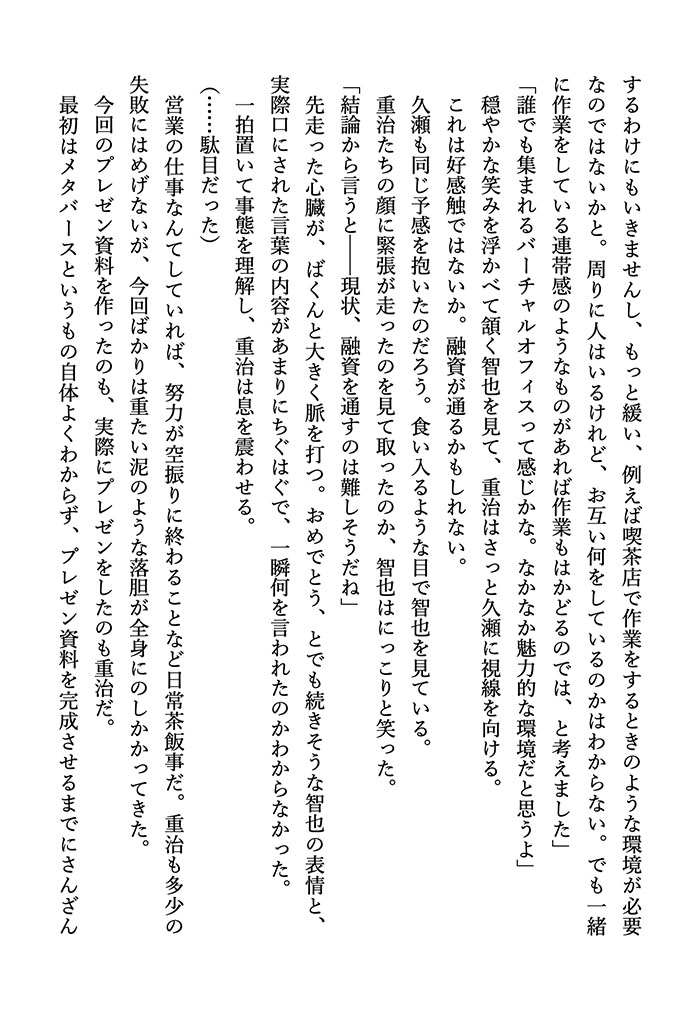 するわけにもいきませんし、もっと緩い、例えば喫茶店で作業をするときのような環境が必要
なのではないかと。周りに人はいるけれど、お互い何をしているのかはわからない。でも一緒
に作業をしている連帯感のようなものがあれば作業もはかどるのでは、と考えました」
「誰でも集まれるバーチャルオフィスって感じかな。なかなか魅力的な環境だと思うよ」
穏やかな笑みを浮かべて頷く智也を見て、重治はさっと久瀬に視線を向ける。
これは好感触ではないか。融資が通るかもしれない。
久瀬も同じ予感を抱いたのだろう。食い入るような目で智也を見ている。
重治たちの顔に緊張が走ったのを見て取ったのか、智也はにっこりと笑った。
「結論から言うと――現状、融資を通すのは難しそうだね」
先走った心臓が、ばくんと大きく脈を打つ。おめでとう、とでも続きそうな智也の表情と、
実際口にされた言葉の内容があまりにちぐはぐで、一瞬何を言われたのかわからなかった。
一拍置いて事態を理解し、重治は息を震わせる。
(……駄目だった)
営業の仕事なんてしていれば、努力が空振りに終わることなど日常茶飯事だ。重治も多少の
失敗にはめげないが、今回ばかりは重たい泥のような落胆が全身にのしかかってきた。
今回のプレゼン資料を作ったのも、実際にプレゼンをしたのも重治だ。
最初はメタバースというもの自体よくわからず、プレゼン資料を完成させるまでにさんざん